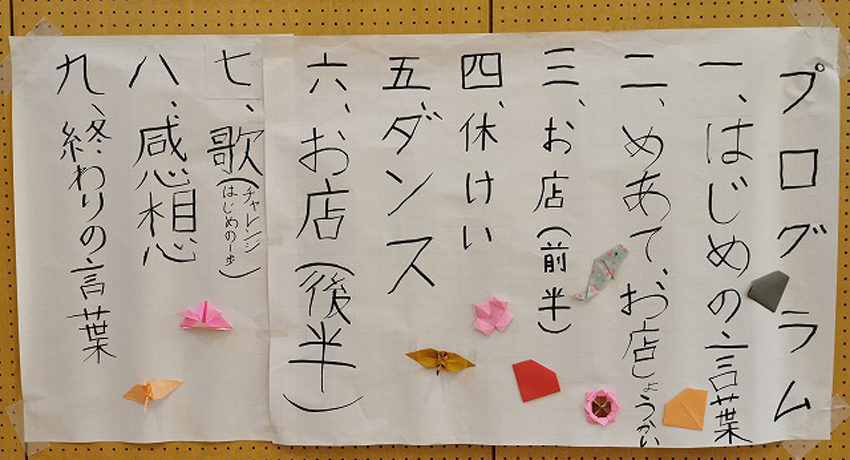 プログラム
一、はじめの言葉
二、めあて、お店しょうかい
三、お店(前半)
四、休けい
五、ダンス
六、お店(後半)
七、歌(チャレンジ
はじめの一歩)
八、感想
九、終わりの言葉